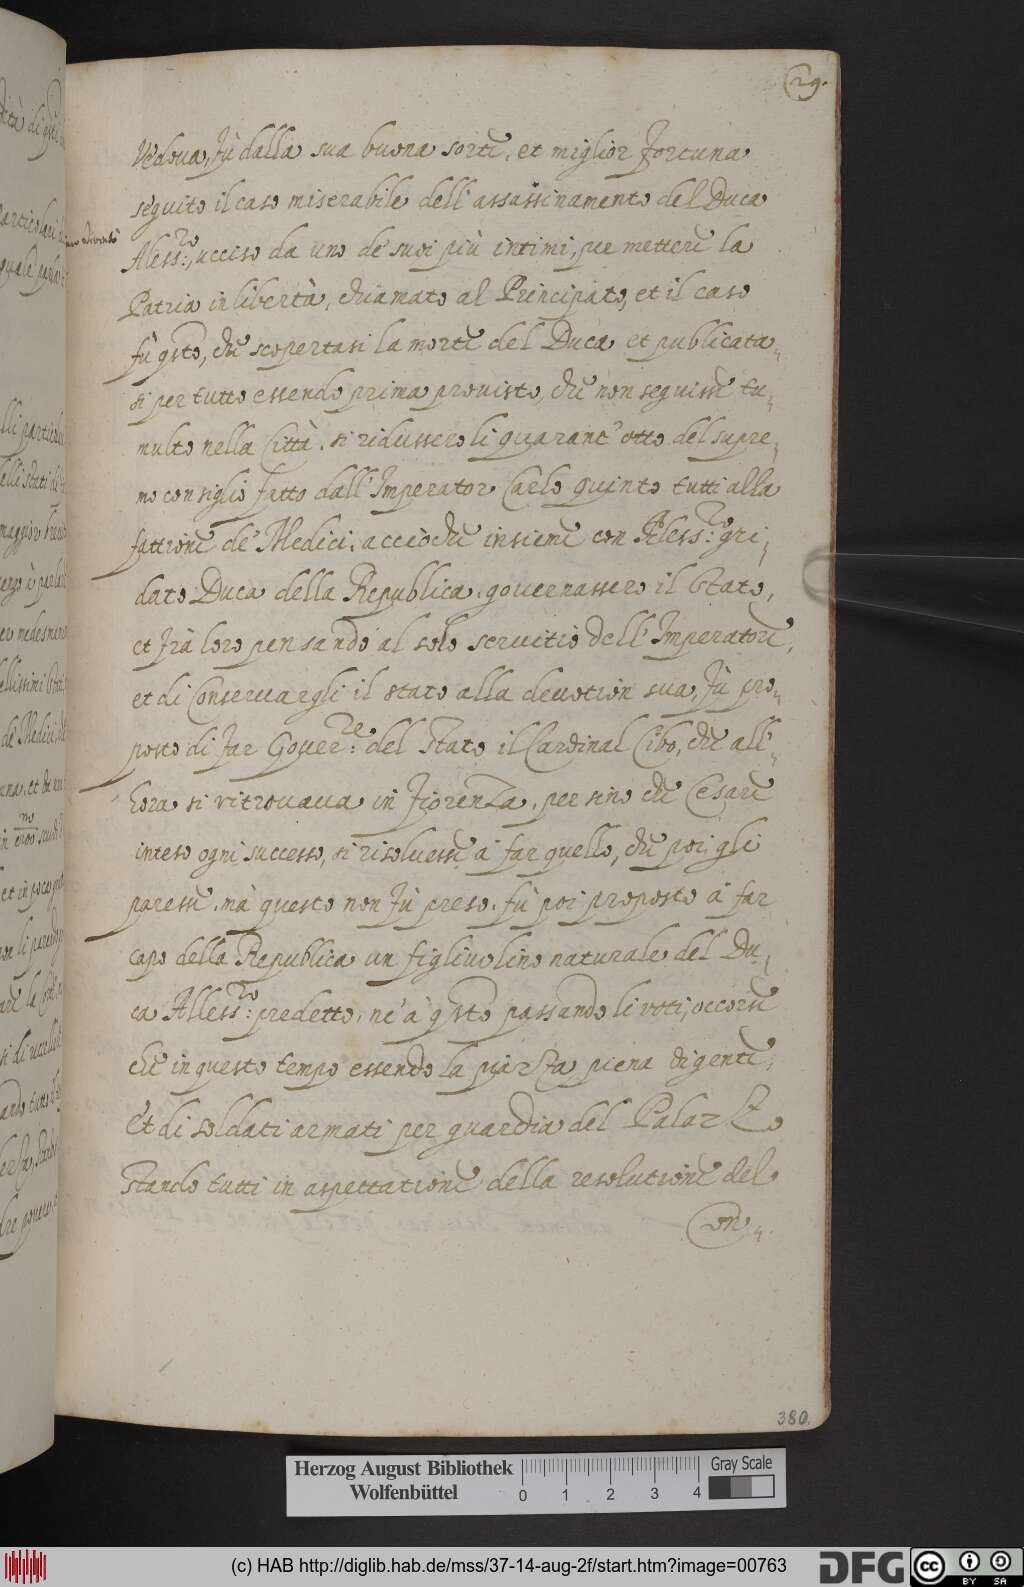 29.
Vedova, fù dalla sua buona sorte, et miglior fortuna
seguito il caso miserabile dell'assassinamento del Duca
Aless:ro, ucciso da uno de' suoi più intimi, per mettere la
Patria in libertà, chiamato al Principato, et il caso
fù gsto, che scopertasi la morte del Duca et publicata-
si per tutto essendo prima provisto, che non seguisse tu-
multo nella Città, si ridussero li quarant'otto del supre-
mo consiglio fatto dall'Imperator Carlo quinto tutti alla
fattione de' Medici, acciòche insieme con Aless:ro gri-
dato Duca della Republica, governassero il Stato,
et frà loro pensando al solo servitio dell'Imperatore,
et di Conservargli il stato alla devotion sua, fù pro-
posto di far Gover:re del Stato il Cardinal Cibo, che all'-
hora si ritrovava in Fiorenza, per sino che Cesare
inteso ogni successo, si risolvesse à far quello, che poi gli
paresse, mà questo non fù preso, fù poi proposto à far
capo della Republica un figliuolino naturale del Du-
ca Alless:ro predetto, nè à gsto passando li voti, occorse
che in questo tempo essendo la piazza piena di gente,
Et di soldati armati per guardia del Palazzo
stando tutti in aspettatione della resolutione del
380.
Herzog August Bibliothek
Wolfenbüttel
0 1 2 3 4
Gray Scale
(c) HAB http://diglib.hab.de/mss/37-14-aug-2f/start.htm?image=00763
DFG
cc BY SA